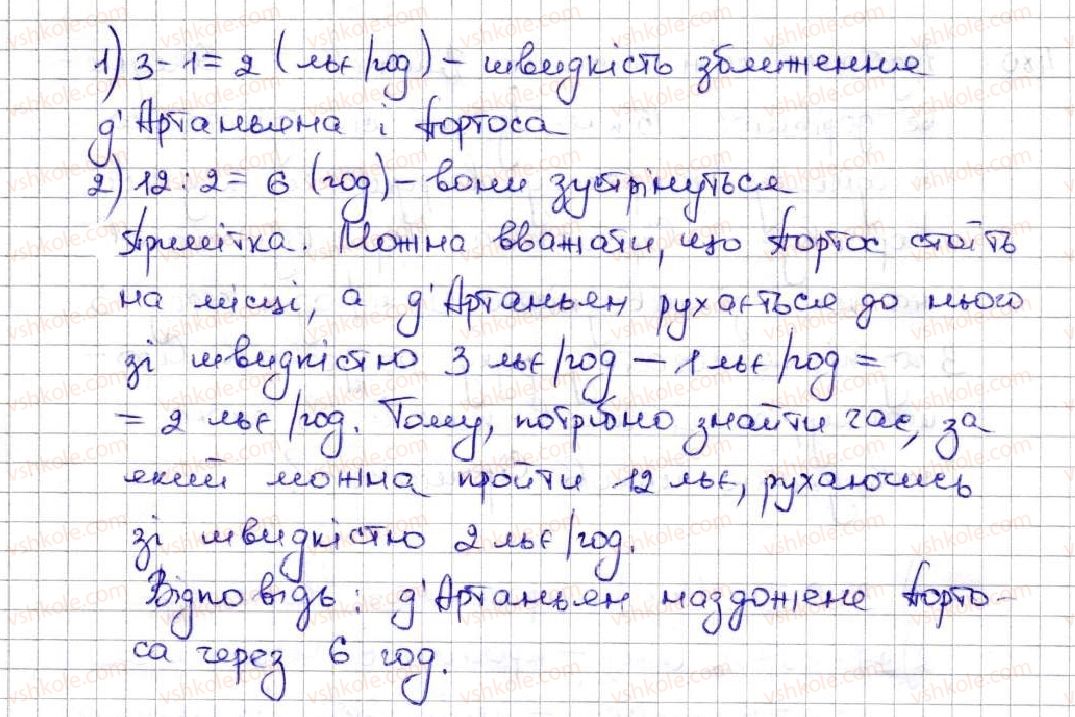 1) 3 - 1 = 2 (льє/год) - швидкість зближення
д'Артаньяна і Портоса
2) 12 : 2 = 6 (год) - вони зустрінуться
Примітка. Можна вважати, що Портос стоїть
на місці, а д'Артаньян рухається до нього
зі швидкістю 3 льє/год - 1 льє/год =
= 2 льє/год. Тому, потрібно знайти час, за
який можна пройти 12 льє, рухаючись
зі швидкістю 2 льє/год.
Відповідь: д'Артаньян наздожене Порто-
са через 6 год.